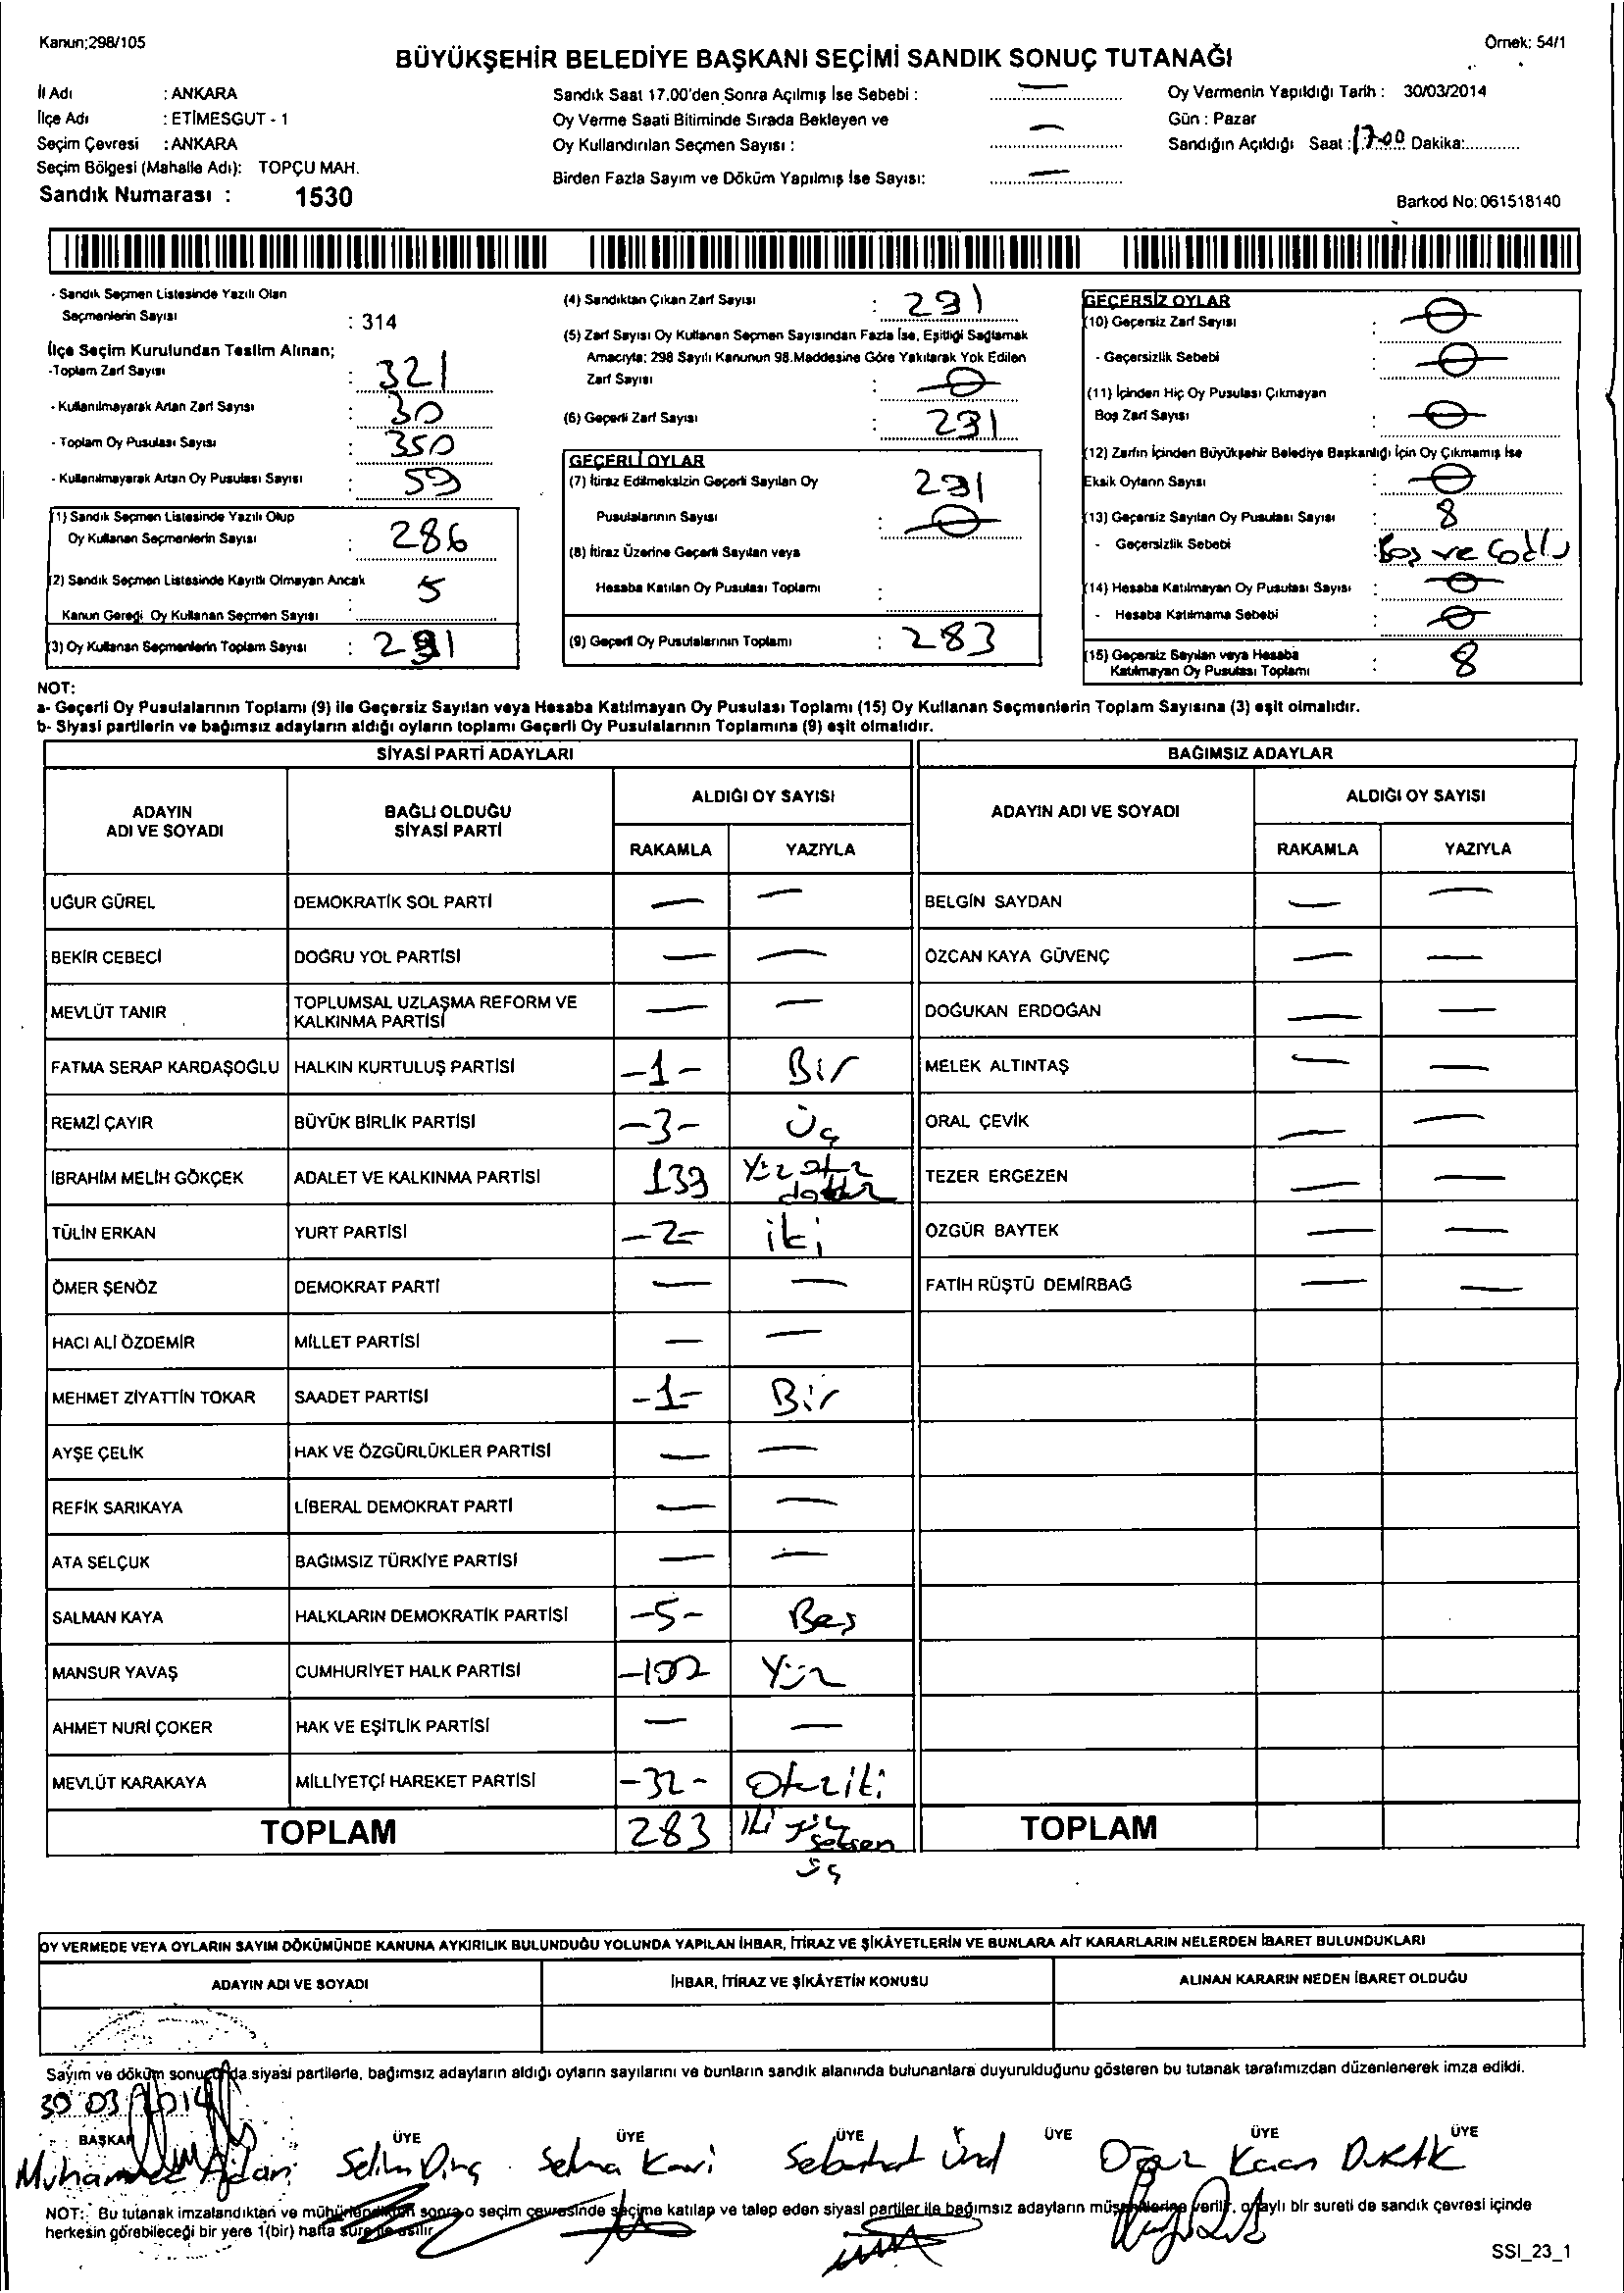 Kanun;298/105
Örnek: 54/1
BÜYÜKŞEHİR BELEDİYE BAŞKANI SEÇİMİ SANDIK SONUÇ TUTANAĞI
İl Adı : ANKARA
İlçe Adı : ETİMESGUT - 1
Seçim Çevresi : ANKARA
Seçim Bölgesi (Mahalle Adı): TOPÇU MAH.
Sandık Numarası : 1530
Sandık Saat 17.00'den Sonra Açılmış İse Sebebi : —
Oy Verme Saati Bitiminde Sırada Bekleyen ve
Oy Kullandırılan Seçmen Sayısı : —
Birden Fazla Sayım ve Döküm Yapılmış İse Sayısı: —
Oy Vermenin Yapıldığı Tarih : 30/03/2014
Gün : Pazar
Sandığın Açıldığı Saat :17.00 Dakika:............
Barkod No: 061518140
- Sandık Seçmen Listesinde Yazılı Olan
Seçmenlerin Sayısı : 314
İlçe Seçim Kurulundan Teslim Alınan;
-Toplam Zarf Sayısı : 321
- Kullanılmayarak Artan Zarf Sayısı : 30
- Toplam Oy Pusulası Sayısı : 350
- Kullanılmayarak Artan Oy Pusulası Sayısı : 59
(1) Sandık Seçmen Listesinde Yazılı Olup
Oy Kullanan Seçmenlerin Sayısı : 286
(2) Sandık Seçmen Listesinde Kayıtlı Olmayan Ancak
Kanun Gereği Oy Kullanan Seçmen Sayısı : 5
(3) Oy Kullanan Seçmenlerin Toplam Sayısı : 291
(4) Sandıktan Çıkan Zarf Sayısı : 291
(5) Zarf Sayısı Oy Kullanan Seçmen Sayısından Fazla İse, Eşitliği Sağlamak
Amacıyla; 298 Sayılı Kanunun 98.Maddesine Göre Yakılarak Yok Edilen
Zarf Sayısı : 0
(6) Geçerli Zarf Sayısı : 291
GEÇERLİ OYLAR
(7) İtiraz Edilmeksizin Geçerli Sayılan Oy 291
Pusulalarının Sayısı : 0
(8) İtiraz Üzerine Geçerli Sayılan veya
Hesaba Katılan Oy Pusulası Toplamı :
(9) Geçerli Oy Pusulalarının Toplamı : 283
GEÇERSİZ OYLAR
(10) Geçersiz Zarf Sayısı : 0
- Geçersizlik Sebebi : 0
(11) İçinden Hiç Oy Pusulası Çıkmayan
Boş Zarf Sayısı : 0
(12) Zarfın İçinden Büyükşehir Belediye Başkanlığı İçin Oy Çıkmamış İse
Eksik Oyların Sayısı : 0
(13) Geçersiz Sayılan Oy Pusulası Sayısı : 8
- Geçersizlik Sebebi : Boş ve
(14) Hesaba Katılmayan Oy Pusulası Sayısı : 0
- Hesaba Katılmama Sebebi : 0
(15) Geçersiz Sayılan veya Hesaba
Katılmayan Oy Pusulası Toplamı : 8
NOT:
a- Geçerli Oy Pusulalarının Toplamı (9) ile Geçersiz Sayılan veya Hesaba Katılmayan Oy Pusulası Toplamı (15) Oy Kullanan Seçmenlerin Toplam Sayısına (3) eşit olmalıdır.
b- Siyasi partilerin ve bağımsız adayların aldığı oyların toplamı Geçerli Oy Pusulalarının Toplamına (9) eşit olmalıdır.
SİYASİ PARTİ ADAYLARI
ADAYIN ADI VE SOYADI BAĞLI OLDUĞU SİYASİ PARTİ ALDIĞI OY SAYISI
RAKAMLA YAZIYLA
UĞUR GÜREL DEMOKRATİK SOL PARTİ — —
BEKİR CEBECİ DOĞRU YOL PARTİSİ — —
MEVLÜT TANIR TOPLUMSAL UZLAŞMA REFORM VE KALKINMA PARTİSİ — —
FATMA SERAP KARDAŞOĞLU HALKIN KURTULUŞ PARTİSİ -1- Bir
REMZİ ÇAYIR BÜYÜK BİRLİK PARTİSİ -3- Üç
İBRAHİM MELİH GÖKÇEK ADALET VE KALKINMA PARTİSİ 139 Yüz otuz dokuz
TÜLİN ERKAN YURT PARTİSİ -2- iki
ÖMER ŞENÖZ DEMOKRAT PARTİ — —
HACI ALİ ÖZDEMİR MİLLET PARTİSİ — —
MEHMET ZİYATTİN TOKAR SAADET PARTİSİ -1- Bir
AYŞE ÇELİK HAK VE ÖZGÜRLÜKLER PARTİSİ — —
REFİK SARIKAYA LİBERAL DEMOKRAT PARTİ — —
ATA SELÇUK BAĞIMSIZ TÜRKİYE PARTİSİ — —
SALMAN KAYA HALKLARIN DEMOKRATİK PARTİSİ -5- Beş
MANSUR YAVAŞ CUMHURİYET HALK PARTİSİ -100 Yüz
AHMET NURİ ÇOKER HAK VE EŞİTLİK PARTİSİ — —
MEVLÜT KARAKAYA MİLLİYETÇİ HAREKET PARTİSİ -32- Otuziki
TOPLAM 283 İki yüz seksen üç
BAĞIMSIZ ADAYLAR
ADAYIN ADI VE SOYADI ALDIĞI OY SAYISI
RAKAMLA YAZIYLA
BELGİN SAYDAN — —
ÖZCAN KAYA GÜVENÇ — —
DOĞUKAN ERDOĞAN — —
MELEK ALTINTAŞ — —
ORAL ÇEVİK — —
TEZER ERGEZEN — —
ÖZGÜR BAYTEK — —
FATİH RÜŞTÜ DEMİRBAĞ — —
TOPLAM
OY VERMEDE VEYA OYLARIN SAYIM DÖKÜMÜNDE KANUNA AYKIRILIK BULUNDUĞU YOLUNDA YAPILAN İHBAR, İTİRAZ VE ŞİKÂYETLERİN VE BUNLARA AİT KARARLARIN NELERDEN İBARET BULUNDUKLARI
ADAYIN ADI VE SOYADI İHBAR, İTİRAZ VE ŞİKÂYETİN KONUSU ALINAN KARARIN NEDEN İBARET OLDUĞU
Sayım ve döküm sonucunda siyasi partilerle, bağımsız adayların aldığı oyların sayılarını ve bunların sandık alanında bulunanlara duyurulduğunu gösteren bu tutanak tarafımızdan düzenlenerek imza edildi.
30 03 2014
BAŞKAN ÜYE ÜYE ÜYE ÜYE ÜYE ÜYE
Selim Dinç Selma Sebahat Ünal Oğuz Kaan DURAK
NOT: Bu tutanak imzalandıktan ve mühürlendikten sonra o seçim çevresinde seçime katılap ve talep eden siyasi partiler ile bağımsız adayların müşahitlerine verilir, onaylı bir sureti de sandık çevresi içinde
herkesin görebileceği bir yere 1(bir) hafta süre ile asılır.
SSI_23_1